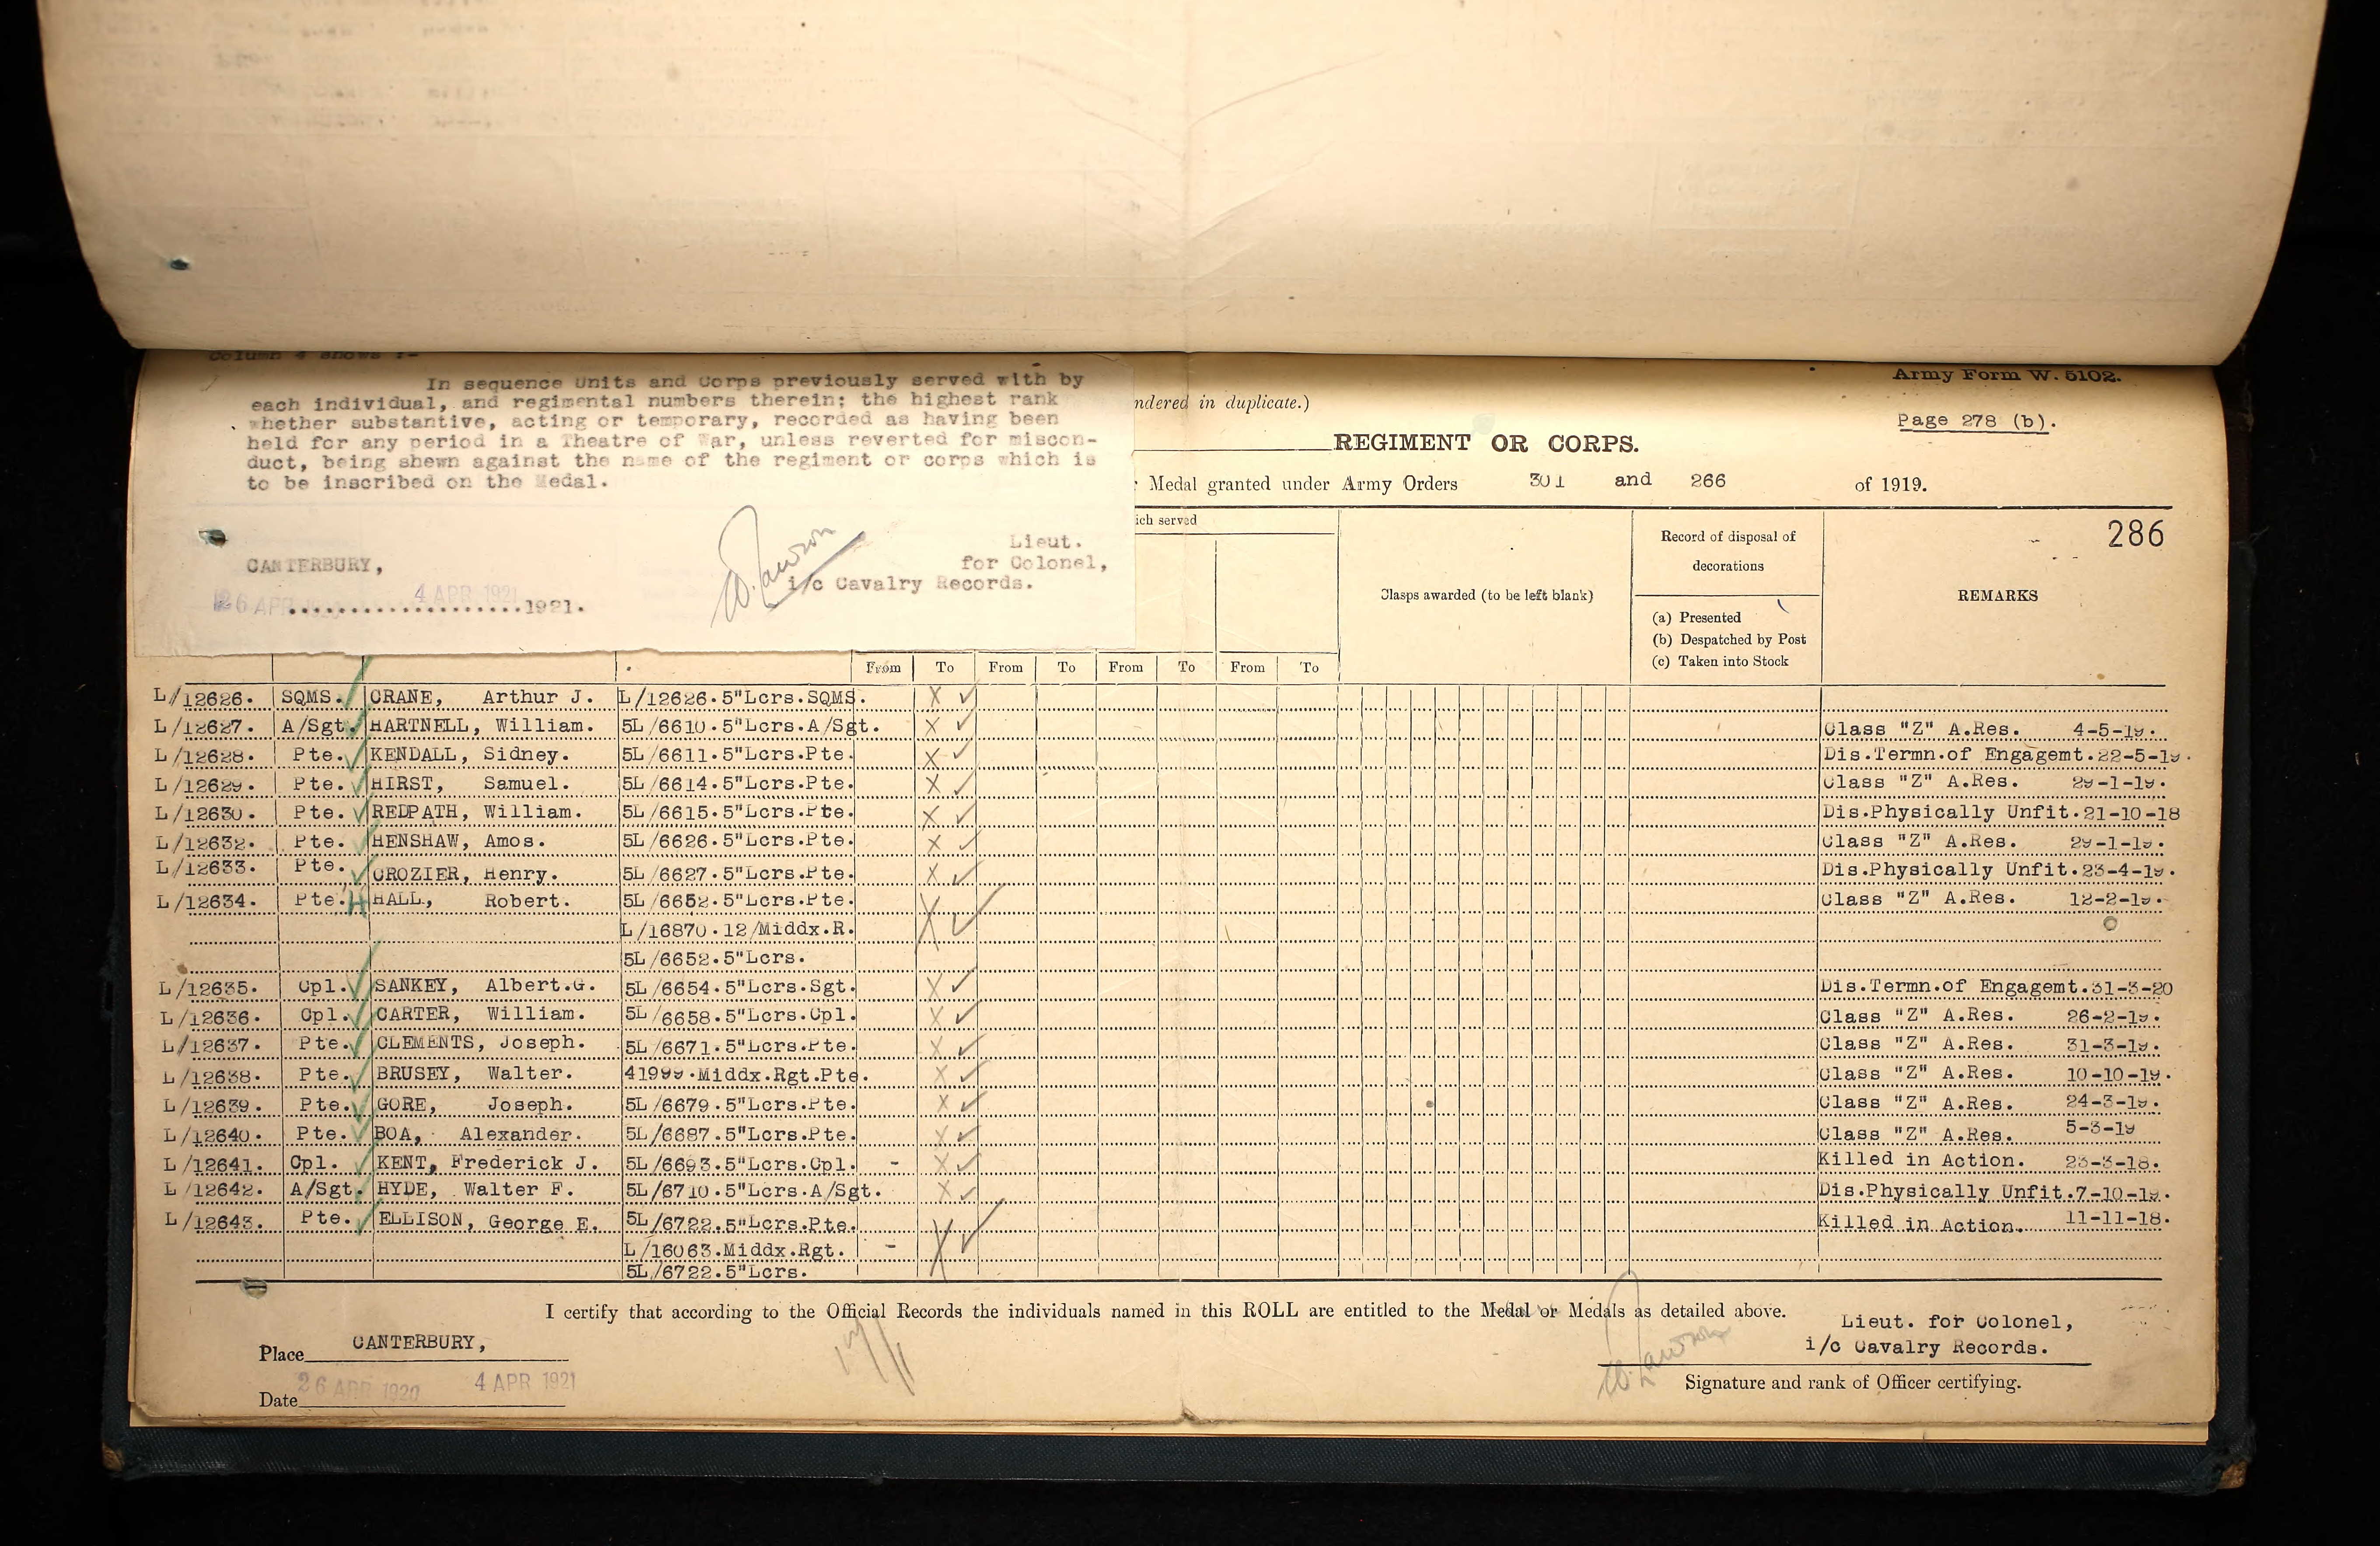 Column 4 shows :-
In sequence Units and Corps previously served with by
each individual, and regimental numbers therein; the highest rank
whether substantive, acting or temporary, recorded as having been
held for any period in a Theatre of War, unless reverted for miscon-
duct, being shewn against the name of the regiment or corps which is
to be inscribed on the Medal.
Lieut.
for Colonel,
i/c Cavalry Records.
W. Lawson
CANTERBURY,
26 APR 1920 4 APR 1921 1921.
Army Form W. 5102.
ndered in duplicate.)
Page 278 (b).
REGIMENT OR CORPS.
Medal granted under Army Orders 301 and 266 of 1919.
286
ich served
Clasps awarded (to be left blank)
Record of disposal of
decorations
(a) Presented
(b) Despatched by Post
(c) Taken into Stock
REMARKS
From To From To From To From To
L/12626. SQMS. CRANE, Arthur J. L/12626.5"Lcrs.SQMS. X ✓
L/12627. A/Sgt. HARTNELL, William. 5L/6610.5"Lcrs.A/Sgt. X ✓ Class "Z" A.Res. 4-5-19.
L/12628. Pte. KENDALL, Sidney. 5L/6611.5"Lcrs.Pte. X ✓ Dis.Termn.of Engagemt.22-5-19.
L/12629. Pte. HIRST, Samuel. 5L/6614.5"Lcrs.Pte. X ✓ Class "Z" A.Res. 29-1-19.
L/12630. Pte. REDPATH, William. 5L/6615.5"Lcrs.Pte. X ✓ Dis.Physically Unfit.21-10-18
L/12632. Pte. HENSHAW, Amos. 5L/6626.5"Lcrs.Pte. X ✓ Class "Z" A.Res. 29-1-19.
L/12633. Pte. CROZIER, Henry. 5L/6627.5"Lcrs.Pte. X ✓ Dis.Physically Unfit.23-4-19.
L/12634. Pte. H HALL, Robert. 5L/6652.5"Lcrs.Pte. X ✓ Class "Z" A.Res. 12-2-19.
L/16870.12/Middx.R.
5L/6652.5"Lcrs.
L/12635. Cpl. SANKEY, Albert.G. 5L/6654.5"Lcrs.Sgt. X ✓ Dis.Termn.of Engagemt.31-3-20
L/12636. Cpl. CARTER, William. 5L/6658.5"Lcrs.Cpl. X ✓ Class "Z" A.Res. 26-2-19.
L/12637. Pte. CLEMENTS, Joseph. 5L/6671.5"Lcrs.Pte. X ✓ Class "Z" A.Res. 31-3-19.
L/12638. Pte. BRUSEY, Walter. 41999.Middx.Rgt.Pte. X ✓ Class "Z" A.Res. 10-10-19.
L/12639. Pte. GORE, Joseph. 5L/6679.5"Lcrs.Pte. X ✓ Class "Z" A.Res. 24-3-19.
L/12640. Pte. BOA, Alexander. 5L/6687.5"Lcrs.Pte. X ✓ Class "Z" A.Res. 5-3-19
L/12641. Cpl. KENT, Frederick J. 5L/6693.5"Lcrs.Cpl. - X ✓ Killed in Action. 23-3-18.
L/12642. A/Sgt. HYDE, Walter F. 5L/6710.5"Lcrs.A/Sgt. X ✓ Dis.Physically Unfit.7-10-19.
L/12643. Pte. ELLISON, George E. 5L/6722.5"Lcrs.Pte. X ✓ Killed in Action. 11-11-18.
L/16063.Middx.Rgt. -
5L/6722.5"Lcrs.
I certify that according to the Official Records the individuals named in this ROLL are entitled to the Medal or Medals as detailed above.
Lieut. for Colonel,
i/c Cavalry Records.
W. Lawson
Signature and rank of Officer certifying.
Place CANTERBURY,
Date 26 APR 1920 4 APR 1921